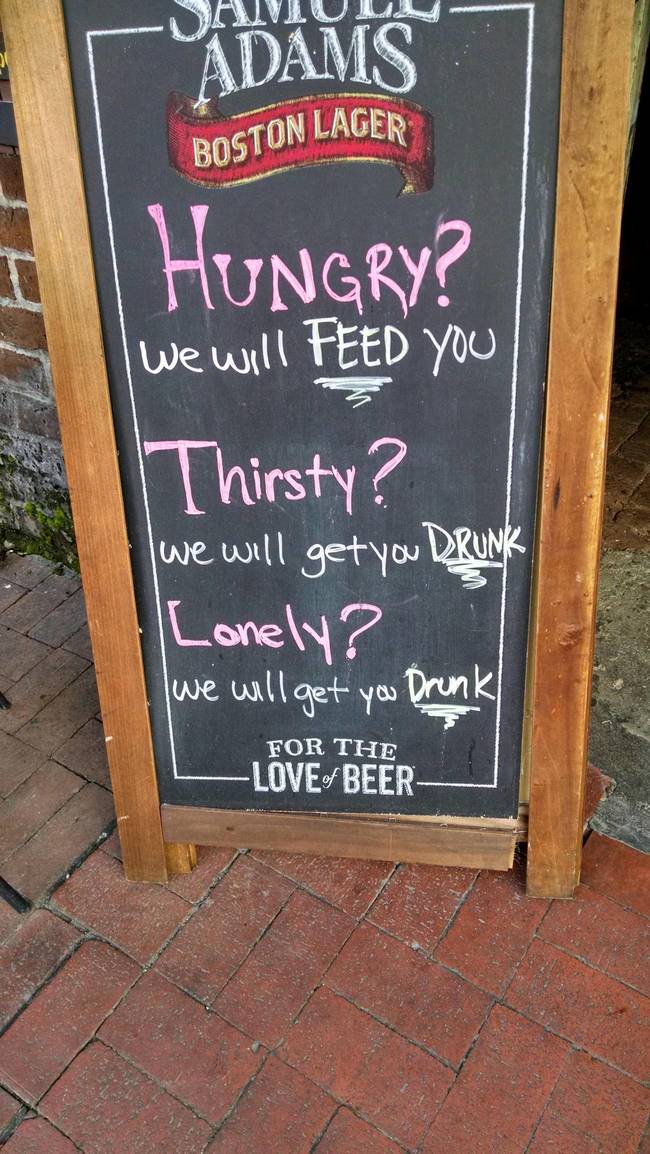 SAMUEL
ADAMS
BOSTON LAGER
HUNGRY?
we will FEED you
Thirsty?
we will get you DRUNK
Lonely?
we will get you Drunk
FOR THE
LOVE of BEER